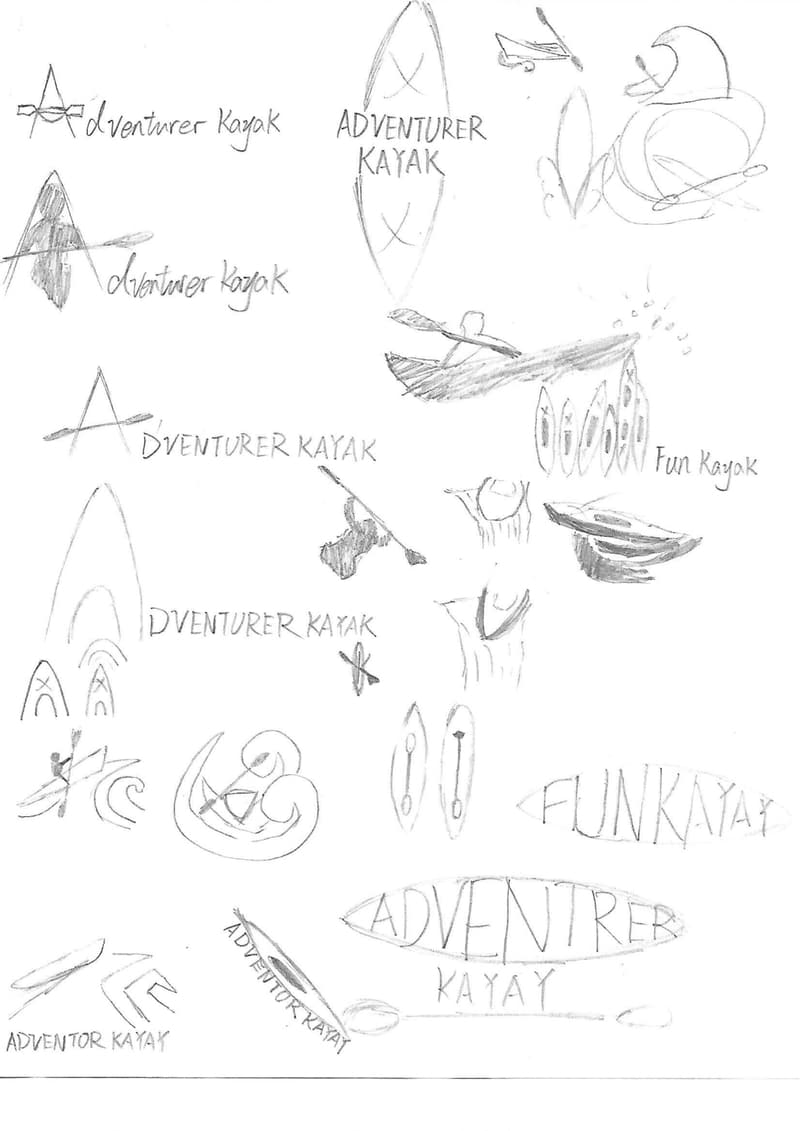 Adventurer Kayak
ADVENTURER
KAYAK
Adventurer Kayak
AD'VENTURER KAYAK
Fun Kayak
ADVENTURER KAYAK
FUNKAYAY
ADVENTRER
KAYAY
ADVENTOR KAYAY
ADVENTOR KAYAY